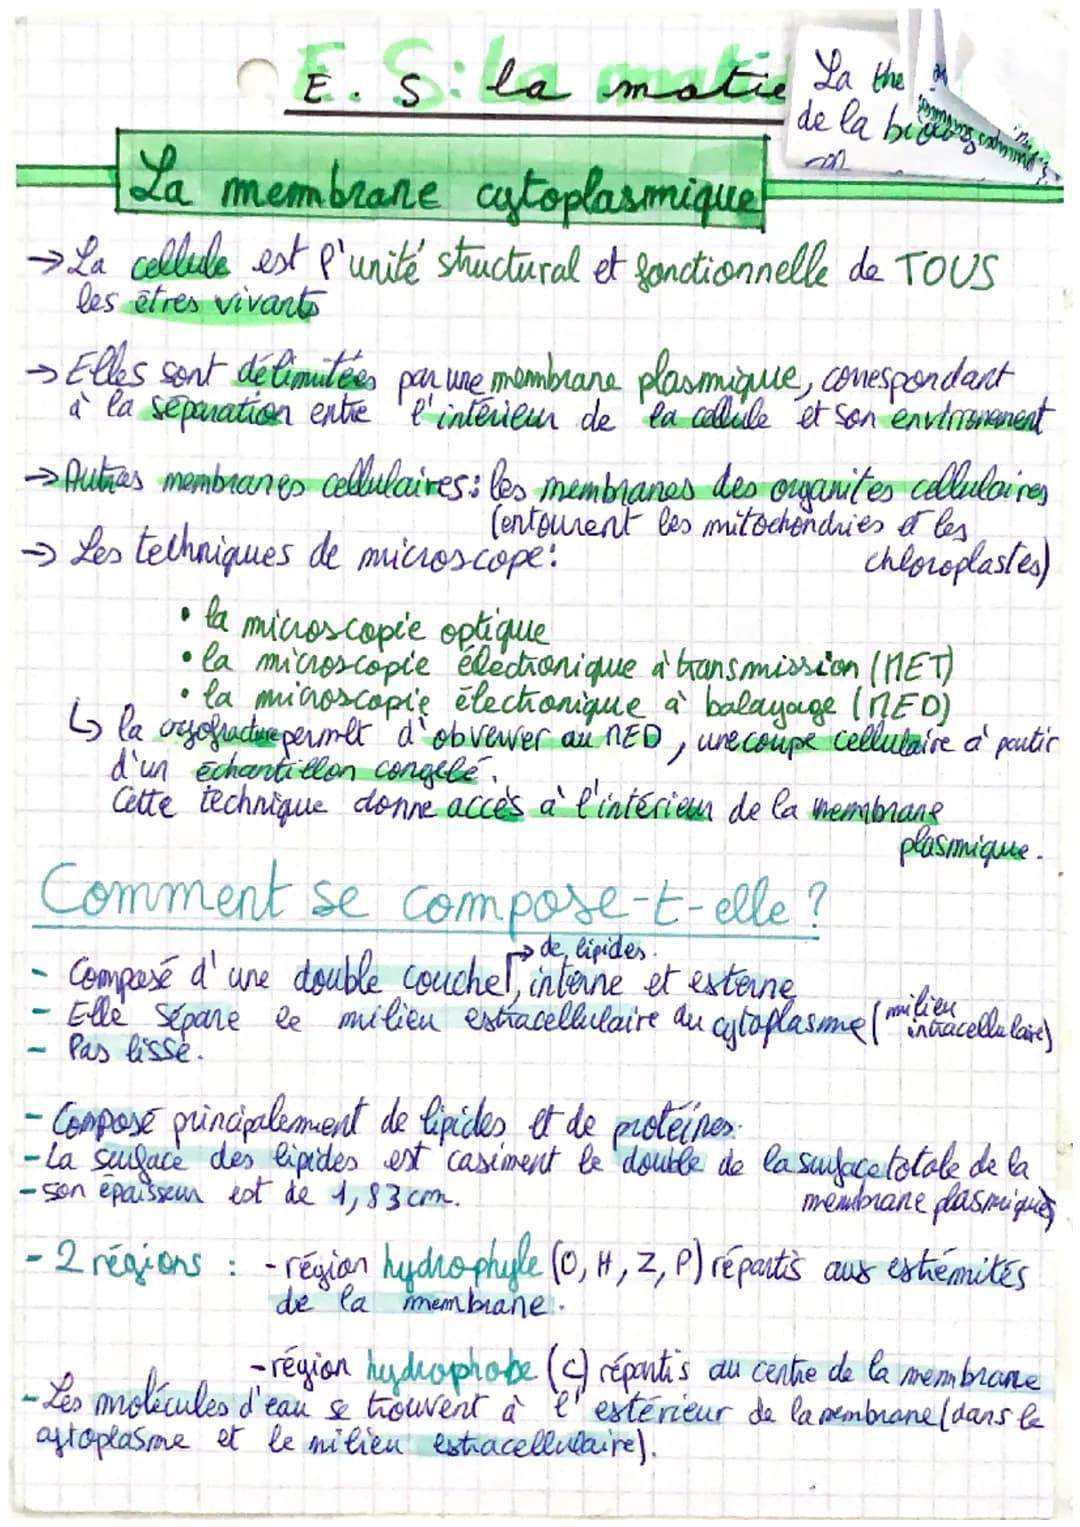 E. S : la matie
La the
de la bio
La membrane cytoplasmique
→ La cellule est l'unité structural et fonctionnelle de TOUS
les êtres vivants
→ Elles sont délimitées par une membrane plasmique, correspondant
à la séparation entre l'intérieur de la cellule et son environnement
→ Autres membranes cellulaires : les membranes des organites cellulaires
(entourent les mitochondries et les
chloroplastes)
→ Les techniques de microscope :
• la microscopie optique
• la microscopie électronique à transmission (MET)
• la microscopie électronique à balayage (MEB)
↳ la cryofracture permet d'obverver au MEB, une coupe cellulaire à partir
d'un échantillon congelé.
Cette technique donne accès à l'intérieur de la membrane
plasmique.
Comment se compose-t-elle ?
→ de lipides.
- Composé d'une double couche, interne et externe
- Elle Sépare le milieu extracellulaire du cytoplasme (milieu
intracellulaire)
- Pas lisse.
- Composé principalement de lipides et de protéines.
- La surface des lipides est casiment le double de la surface totale de la
membrane plasmique
- son épaisseur est de 1,83 cm.
- 2 régions : - région hydrophyle (O, H, Z, P) répartis aux extrémités
de la membrane.
- région hydrophobe (C) répartis au centre de la membrane
- Les molécules d'eau se trouvent à l'extérieur de la membrane (dans le
cytoplasme et le milieu extracellulaire).